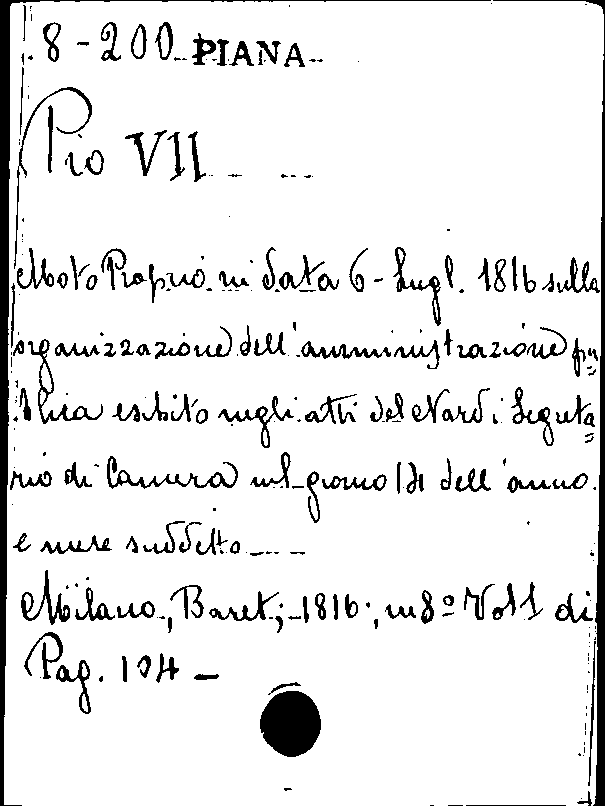 8-200 PIANA
Pio VII
Moto Proprio in data 6 - Lugl. 1816 sulla
organizzazione dell'amministrazione pu=
blica esibito negli atti del Nardi Segreta=
rio di Camera nel giorno 14 dell'anno
e mese suddetto
Milano, Baret; 1816; in 8º Vol 1 di
Pag. 104 -